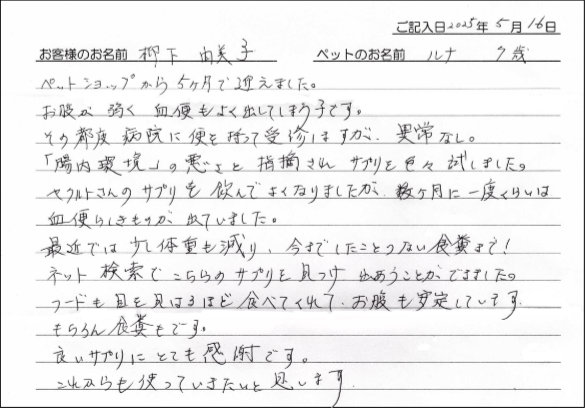 ご記入日2025年5月16日
お客様のお名前 柳下 由美子 ペットのお名前 ルナ 9歳
ペットショップから5ヶ月で迎えました。
お腹が弱く 血便もよく出してしまう子です。
その都度 病院に便を持って受診しますが、異常なし。
「腸内環境」の悪さと指摘され サプリを色々試しました。
ヤクルトさんのサプリを飲んでよくなりましたが、数ヶ月に一度くらいは
血便らしきものが出ていました。
最近では少し体重も減り、今までしたことのない食糞まで!
ネット検索でこちらのサプリを見つけ 出あうことができました。
フードも目を見はるほど食べてくれて、お腹も安定しています。
もちろん食糞もです。
良いサプリにとても感謝です。
これからも使っていきたいと思います